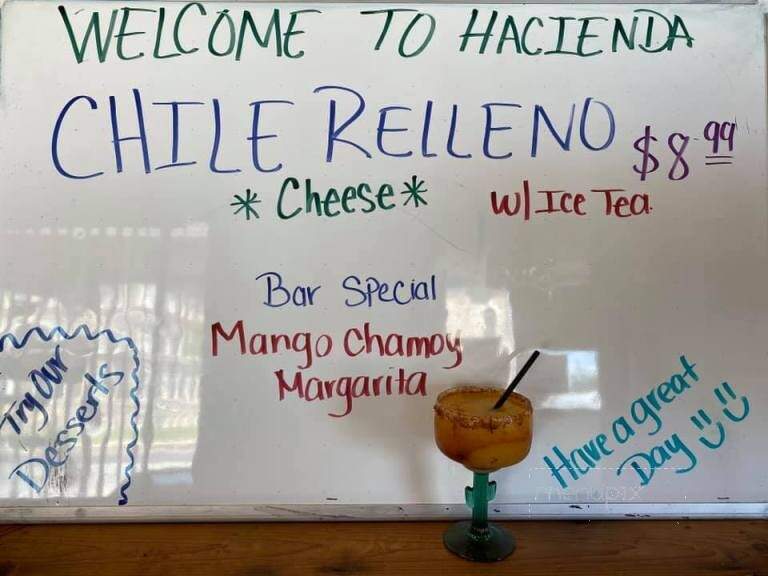 WELCOME TO HACIENDA
CHILE RELLENO $8.99
*Cheese* w/ Ice Tea.
Bar Special
Mango Chamoy
Margarita
Try Our
Desserts
Have a great
Day
menupix